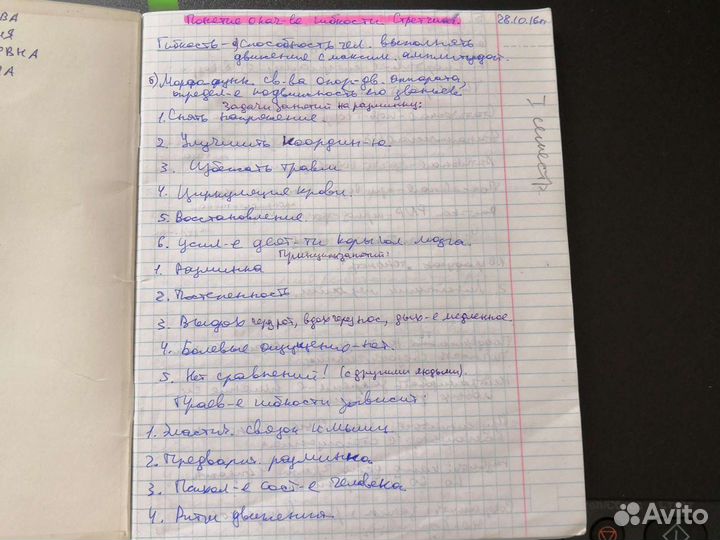 ВА
ИЯ
ВНА
А
Понятие о кач-ве гибкости. Стретчинг. 28.10.16г
Гибкость - а) Способность чел. выполнять
движение с максим. амплитудой.
б) Морфофунк. св-ва опор-дв. аппарата,
определ-е подвижность его звеньев
Задачи занятий на разминку:
1. Снять напряжение.
2. Улучшить координ-ю.
3. Избежать травм
4. Циркуляция крови.
5. Восстановление
6. Усил-е деят-ти коры гол. мозга.
Принципы занятий:
1. Разминка
2. Постепенность
3. Выдох через рот, вдох через нос, дых-е медленное.
4. Болевые ощущения - нет.
5. Нет сравнений! (с другими людьми).
гибкости зависит:
1. Эластич. связок и мышц.
2. Предварит. разминка
3. Психол-е сост-е человека
4. Ритм движения
I семестр
Avito